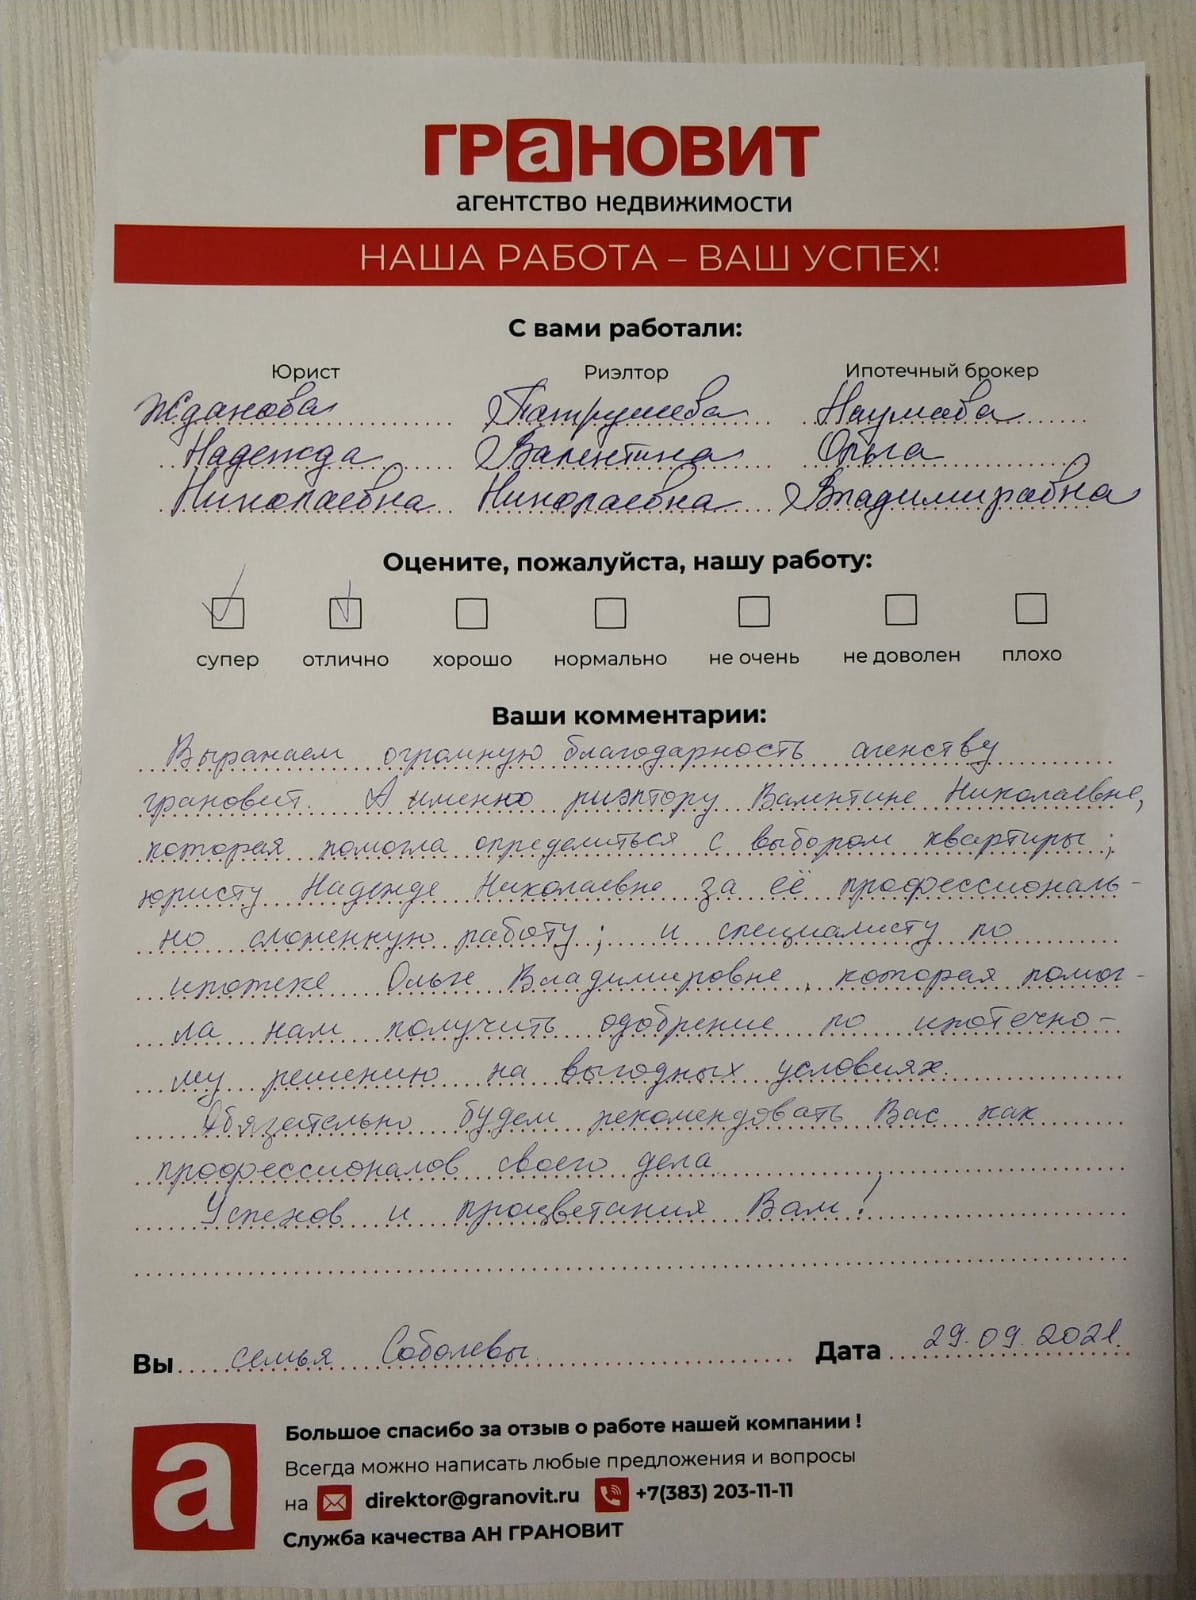 ГРаНОВИТ
агентство недвижимости
НАША РАБОТА – ВАШ УСПЕХ!
С вами работали:
Юрист Риэлтор Ипотечный брокер
Жданова Патрушева Наумова
Надежда Валентина Ольга
Николаевна Николаевна Владимировна
Оцените, пожалуйста, нашу работу:
супер отлично хорошо нормально не очень не доволен плохо
Ваши комментарии:
Выражаем огромную благодарность агенству
грановит. А именно риэлтору Валентине Николаевне,
которая помогла определиться с выбором квартиры;
юристу Надежде Николаевне за её профессиональ-
но сложенную работу; и специалисту по
ипотеке Ольге Владимировне, которая помог-
ла нам получить одобрение по ипотечно-
му решению на выгодных условиях.
Обязательно будем рекомендовать Вас как
профессионалов своего дела
Успехов и процветания Вам!
Вы семья Соболевы Дата 29.09.2021.
а
Большое спасибо за отзыв о работе нашей компании !
Всегда можно написать любые предложения и вопросы
на direktor@granovit.ru +7(383) 203-11-11
Служба качества АН ГРАНОВИТ